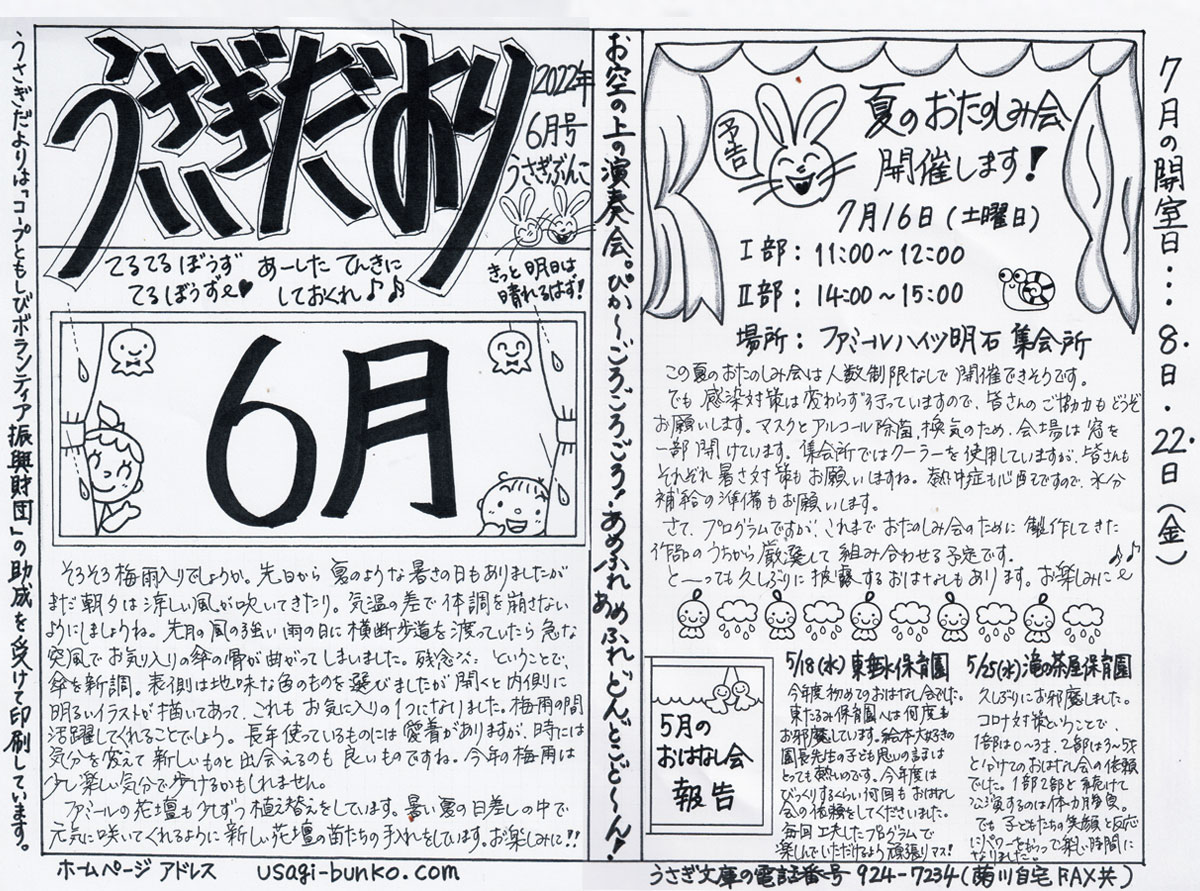 うさぎだより
2022年
6月号
うさぎぶんこ
てるてるぼうず
てるぼうず
あーした てんきに
しておくれ♪♪
きっと明日は
晴れるはず!
6月
そろそろ梅雨入りでしょうか。先日から夏のような暑さの日もありましたが
まだ朝夕は涼しい風が吹いてきたり。気温の差で体調を崩さない
ようにしましょうね。先月の風の強い雨の日に横断歩道を渡っていたら急な
突風でお気り入りの傘の骨が曲がってしまいました。残念 ということで、
傘を新調。表側は地味な色のものを選びましたが開くと内側に
明るいイラストが描いてあって、これもお気に入りの1つになりました。梅雨の間
活躍してくれることでしょう。長年使っているものには愛着がありますが、時には
気分を変えて新しいものと出会えるのも良いものですね。今年の梅雨は
少し楽しい気分で歩けるかもしれません。
ファミールの花壇も少しずつ植え替えをしています。暑い夏の日差しの中で
元気に咲いてくれるように新しい花壇の苗たちの手入れをしています。お楽しみに!!
うさぎだよりは「コープともしびボランティア振興財団」の助成を受けて印刷しています。
ホームページ アドレス usagi-bunko.com
お空の上の演奏会。ぴか〜ごろごろごろ!あめふれ あめふれ どんどこど〜ん!
予告
夏のおたのしみ会
開催します!
7月16日(土曜日)
Ⅰ部:11:00〜12:00
Ⅱ部:14:00〜15:00
場所:ファミールハイツ明石 集会所
この夏のおたのしみ会は人数制限なしで開催できそうです。
でも感染対策は変わらず行っていますので、皆さんのご協力もどうぞ
お願いします。マスクとアルコール除菌、換気のため、会場は窓を
一部開けています。集会所ではクーラーを使用していますが、皆さんも
それぞれ暑さ対策もお願いしますね。熱中症も心配ですので、水分
補給の準備もお願いします。
さて、プログラムですが、これまでおたのしみ会のために製作してきた
作品のうちから厳選して組み合わせる予定です。
と〜っても久しぶりに披露するおはなしもあります。お楽しみに♪♪
5月の
おはなし会
報告
5/18(水)東垂水保育園
今年度初めてのおはなし会でした。
東たるみ保育園へは何度も
お邪魔しています。絵本大好きの
園長先生の子ども思いの話は
とっても熱いのです。今年度は
びっくりするくらい何回もおはなし
会の依頼をしてくださいました。
毎回工夫したプログラムで
楽しんでいただけるよう頑張りマス!
5/25(水)滝の茶屋保育園
久しぶりにお邪魔しました。
コロナ対策ということで、
1部は0〜3才、2部は3〜5才
と分けてのおはなし会の依頼
でした。1部2部と続けて
公演するのは体力勝負。
でも子どもたちの笑顔と反応
にパワーをもらって楽しい時間に
なりました。
7月の開室日…8日・22日(金)
うさぎ文庫の電話番号 924-7234(菊川自宅 FAX共)